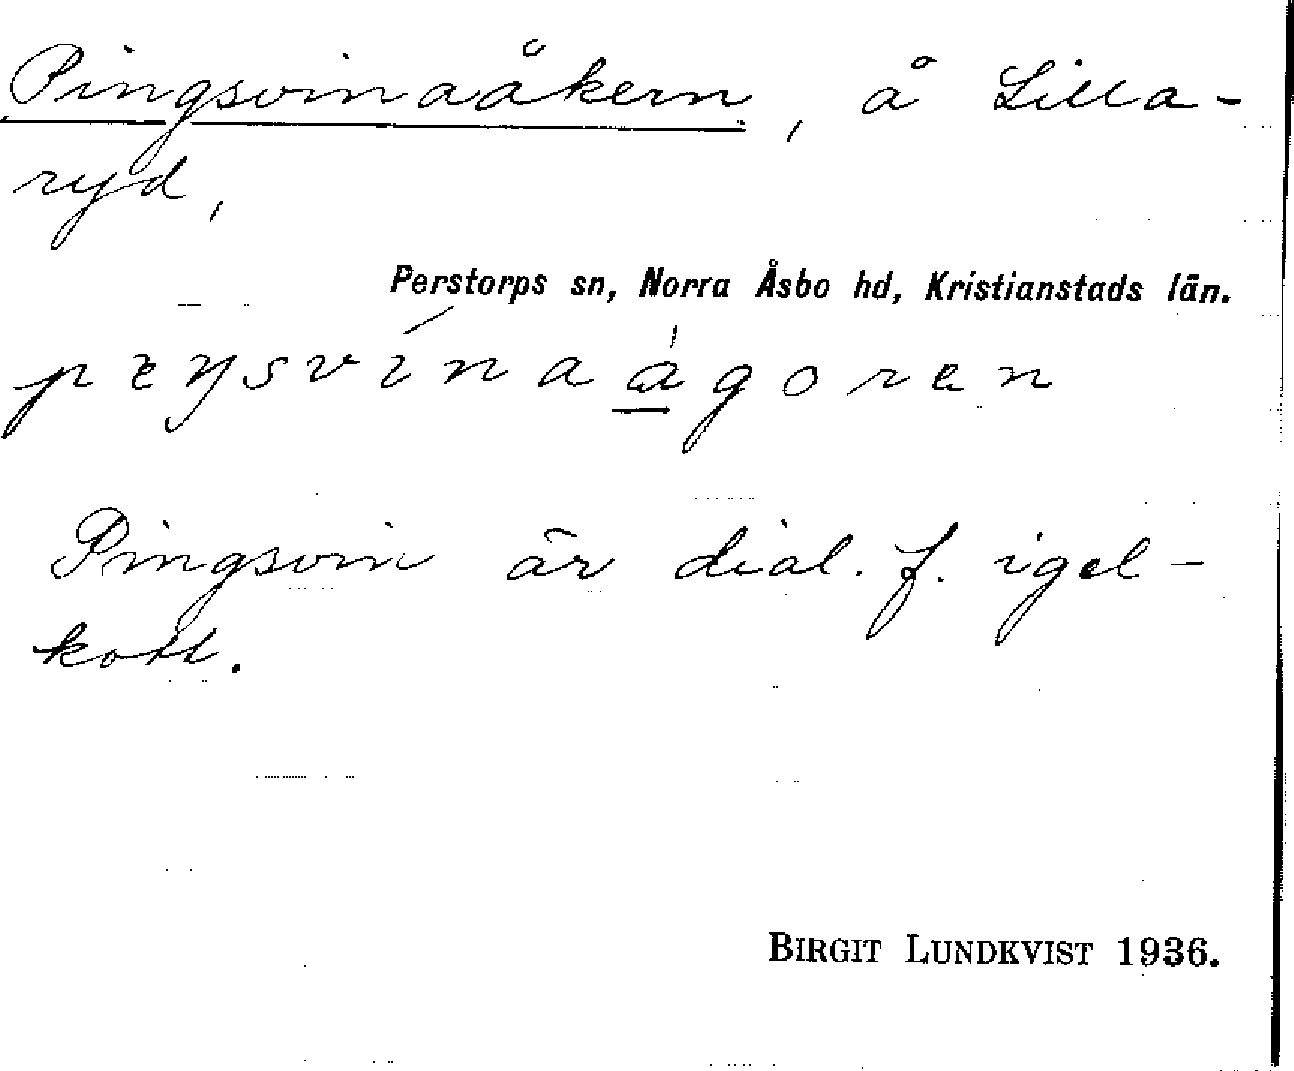 Pingsvinaåkern, å Lilla-
ryd,
Perstorps sn, Norra Åsbo hd, Kristianstads län.
peŋsvínaa̲̍goren
Pingsvin är dial. f. igel-
kott.
BIRGIT LUNDKVIST 1936.